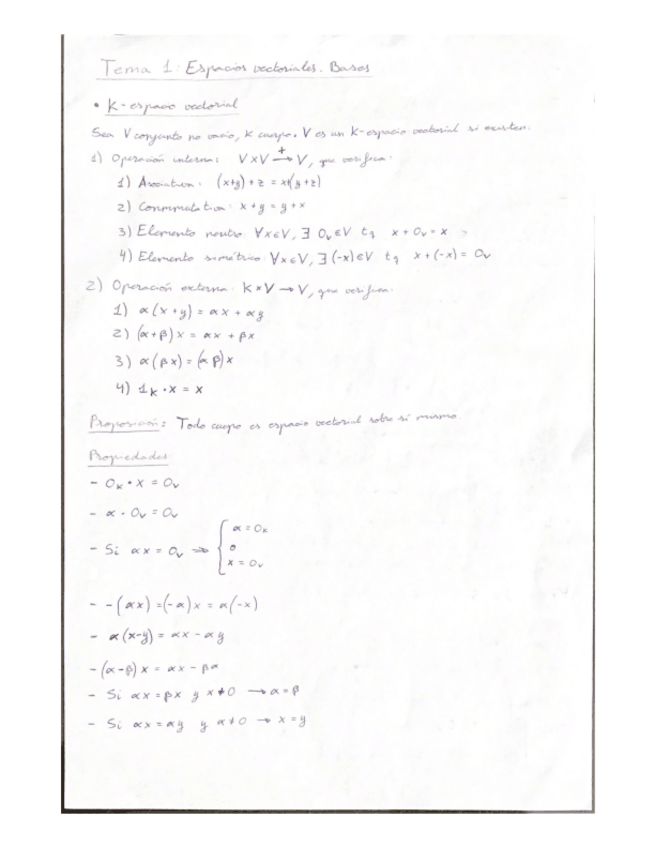 Tema 1: Espacios vectoriales. Bases
• K-espacio vectorial
Sea V conjunto no vacío, K cuerpo. V es un K-espacio vectorial si existen:
1) Operación interna: V×V —+→ V, que verifica:
1) Asociativa: (x+y)+z = x+(y+z)
2) Conmutativa: x+y = y+x
3) Elemento neutro: ∀x∈V, ∃ 0ᵥ∈V tq x+0ᵥ = x
4) Elemento simétrico: ∀x∈V, ∃(-x)∈V tq x+(-x) = 0ᵥ
2) Operación externa: K×V → V, que verifica:
1) α(x+y) = αx + αy
2) (α+β)x = αx + βx
3) α(βx) = (αβ)x
4) 1ₖ • x = x
Proposición: Todo cuerpo es espacio vectorial sobre sí mismo.
Propiedades
- 0ₖ • x = 0ᵥ
- α · 0ᵥ = 0ᵥ
- Si αx = 0ᵥ ⇒ { α = 0ₖ
o
x = 0ᵥ
- -(αx) = (-α)x = α(-x)
- α(x-y) = αx - αy
- (α-β)x = αx - βx
- Si αx = βx y x≠0 → α=β
- Si αx = αy y α≠0 → x=y